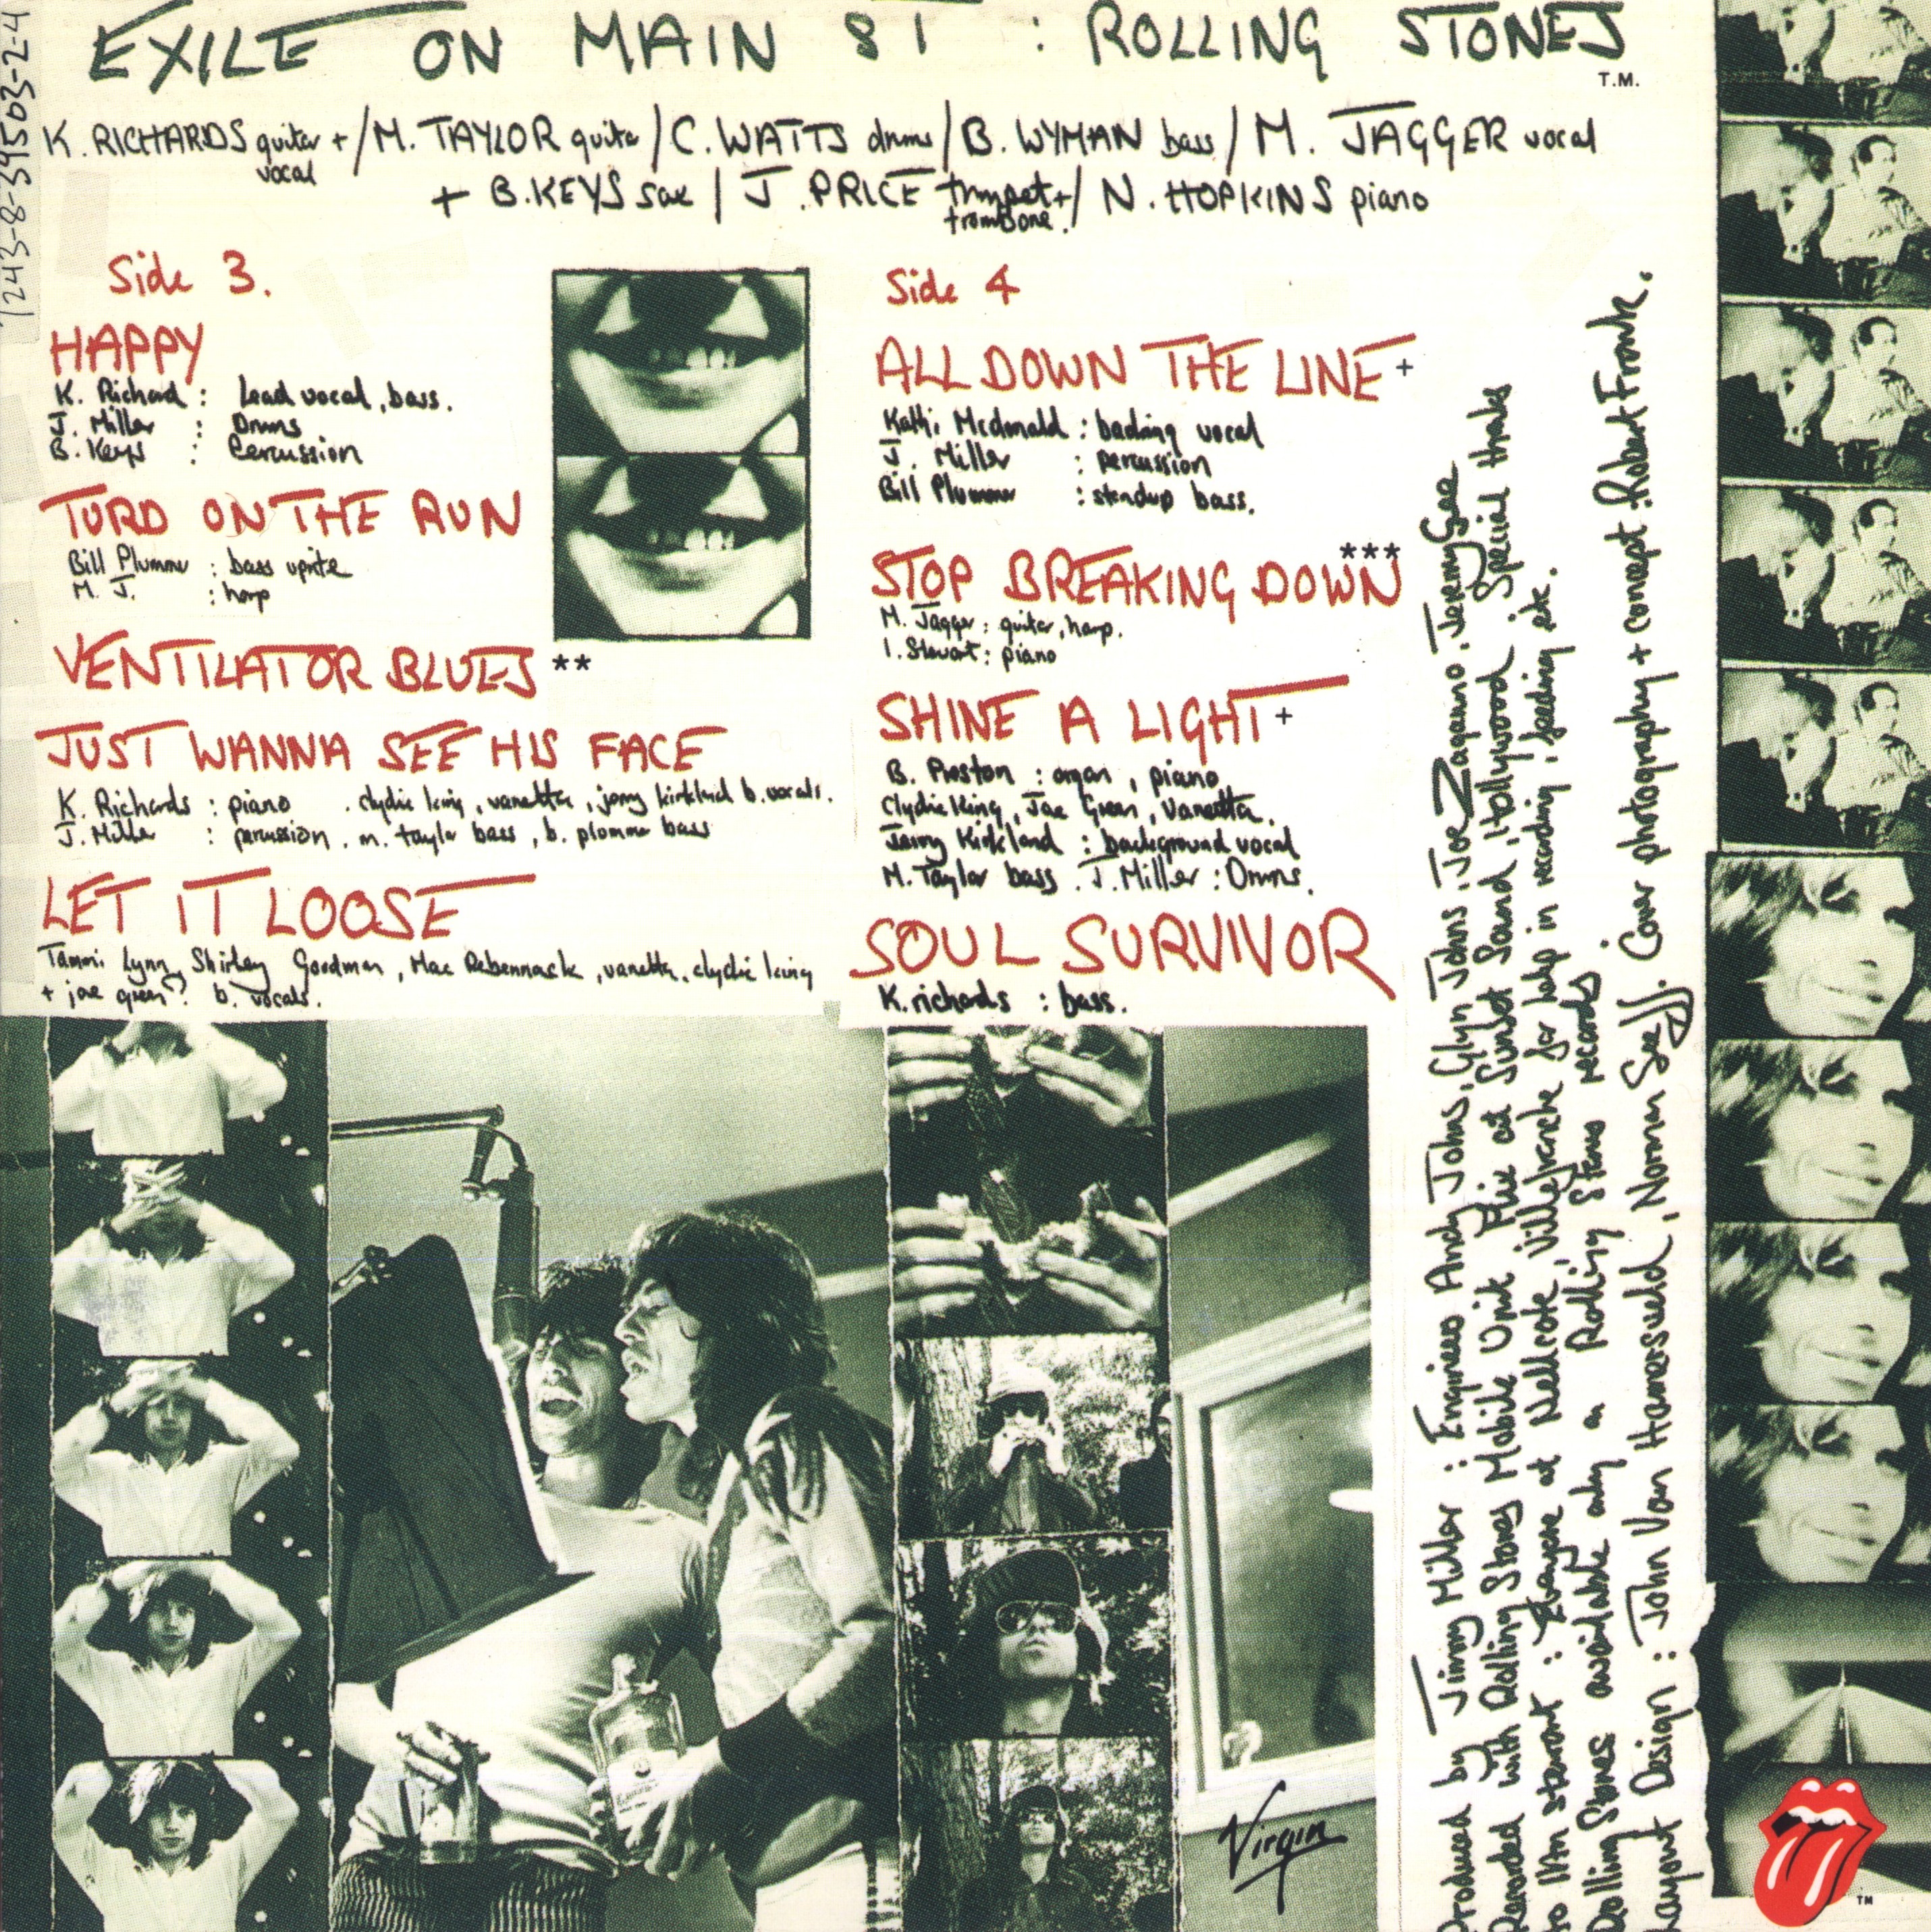 EXILE ON MAIN ST : ROLLING STONES
T.M.
K. RICHARDS guitar + vocal / M. TAYLOR guitar / C. WATTS drums / B. WYMAN bass / M. JAGGER vocal
+ B. KEYS sax / J. PRICE trumpet + trombone. / N. HOPKINS piano
Side 3.
HAPPY
K. Richard : Lead vocal, bass.
J. Miller : Drums
B. Keys : Percussion
TURD ON THE RUN
Bill Plummer : bass uprite
M. J. : harp
VENTILATOR BLUES **
JUST WANNA SEE HIS FACE
K. Richards : piano . clydie king, vanetta, jerry kirkland b. vocals.
J. Miller : percussion . m. taylor bass, b. plummer bass
LET IT LOOSE
Tammi Lynn, Shirley Goodman, Mac Rebennack, vanetta, clydie king
+ joe green b. vocals.
Side 4
ALL DOWN THE LINE +
Kathi Mcdonald : backing vocal
J. Miller : percussion
Bill Plummer : standup bass.
STOP BREAKING DOWN ***
M. Jagger : guitar, harp.
I. Stewart : piano
SHINE A LIGHT +
B. Preston : organ, piano
Clydie King, Joe Green, Vanetta,
Jerry Kirkland : background vocal
M. Taylor bass . J. Miller : Drums.
SOUL SURVIVOR
K. richards : bass.
Produced by Jimmy Miller : Engineers Andy Johns, Glyn Johns, Joe Zagarino, Jeremy Gee
Recorded with Rolling Stones Mobile Unit + at Sunset Sound, Hollywood . Special thanks
to Ian stewart : Everyone at Nellcote, Villefranche for help in recording, feeding etc.
Rolling Stones available only on Rolling Stones records
Layout Design : John Van Hamersveld, Norman Seeff. Cover photography + concept : Robert Frank.
7243-8-39503-2-4
Virgin
TM